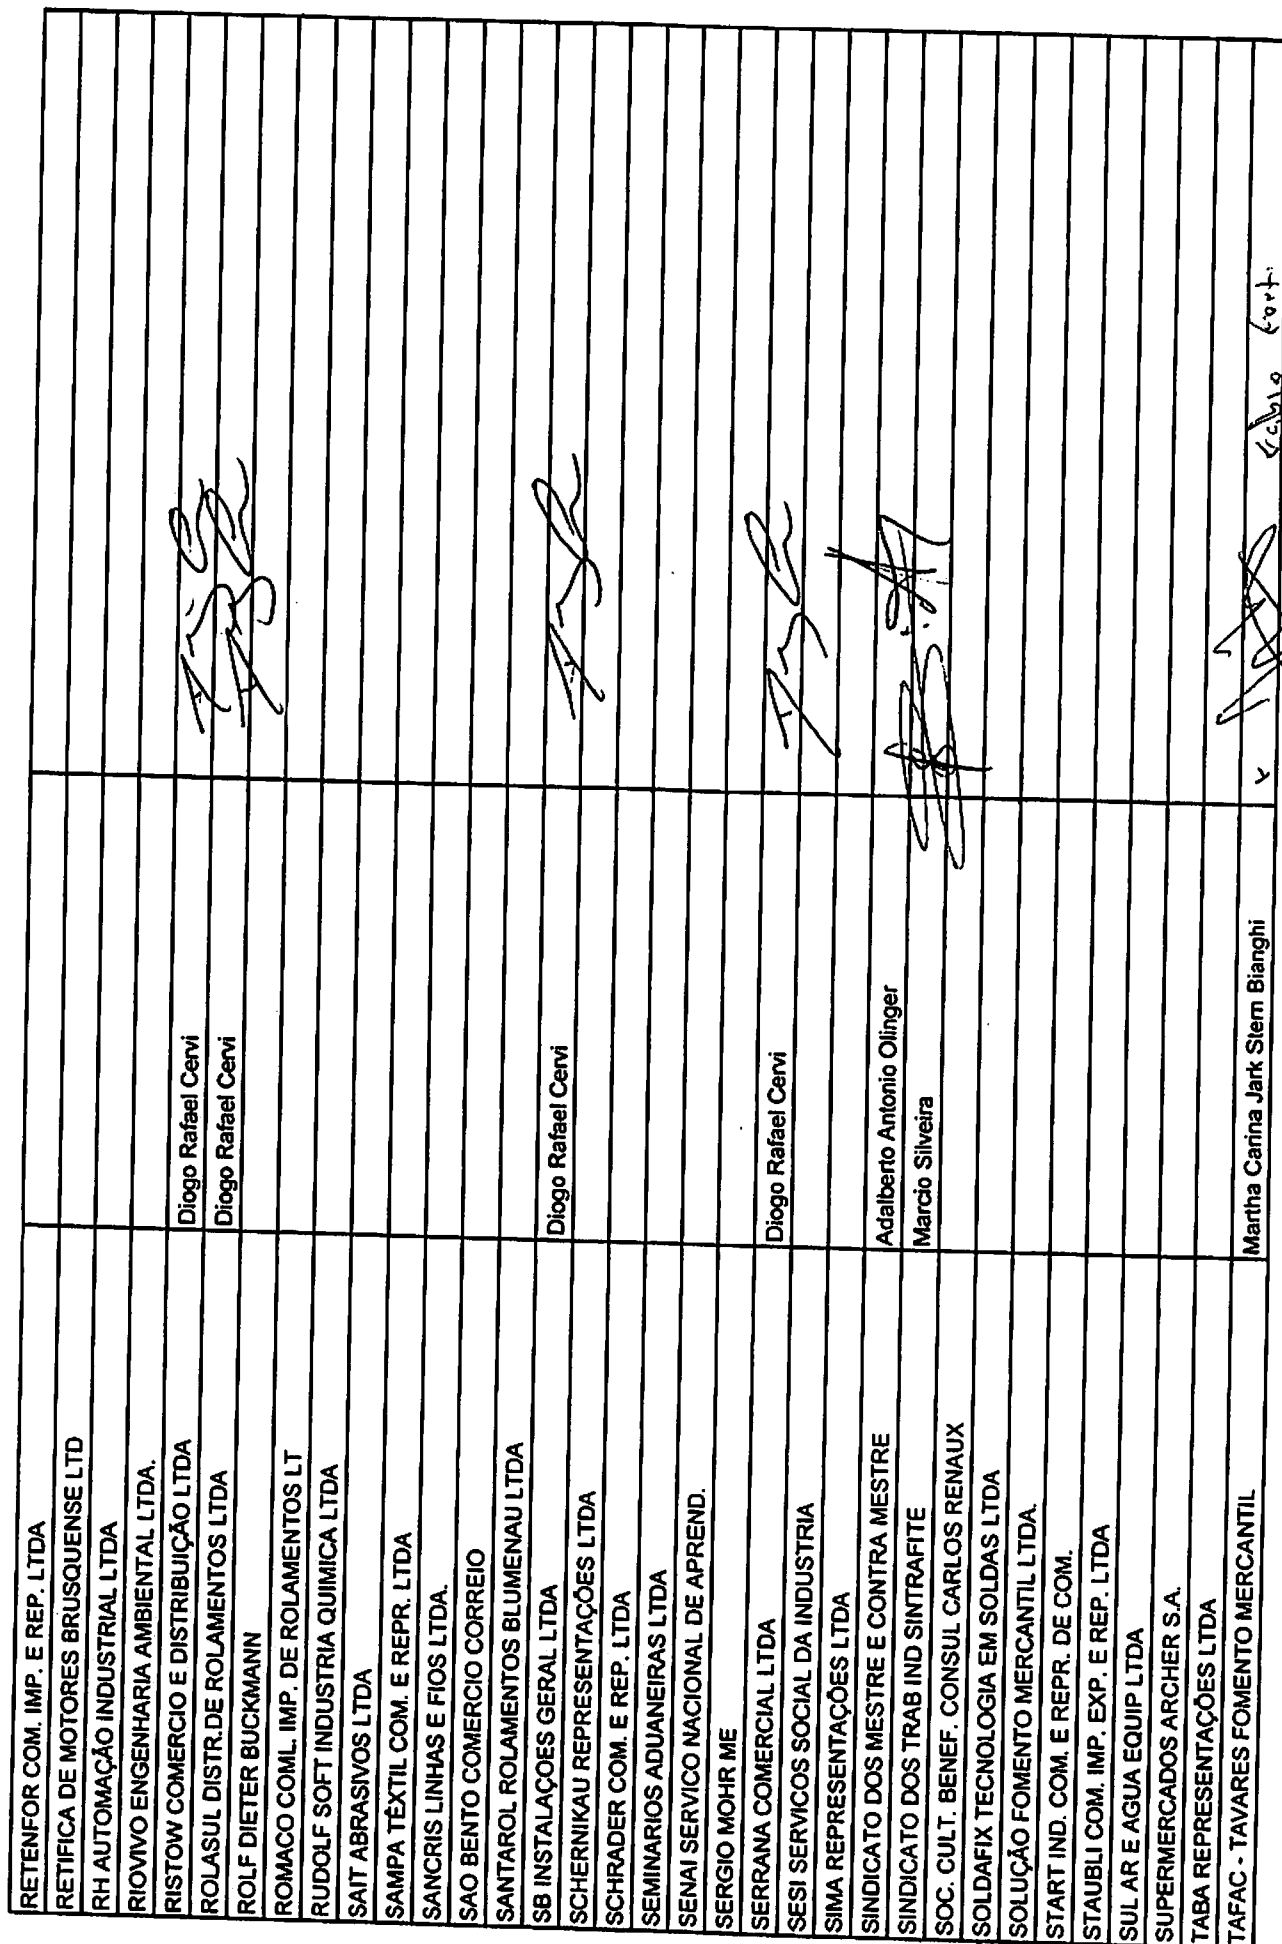 RETENFOR COM. IMP. E REP. LTDA
RETIFICA DE MOTORES BRUSQUENSE LTD
RH AUTOMAÇÃO INDUSTRIAL LTDA
RIOVIVO ENGENHARIA AMBIENTAL LTDA.
RISTOW COMERCIO E DISTRIBUIÇÃO LTDA Diogo Rafael Cervi
ROLASUL DISTR.DE ROLAMENTOS LTDA Diogo Rafael Cervi
ROLF DIETER BUCKMANN
ROMACO COML. IMP. DE ROLAMENTOS LT
RUDOLF SOFT INDUSTRIA QUIMICA LTDA
SAIT ABRASIVOS LTDA
SAMPA TÊXTIL COM. E REPR. LTDA
SANCRIS LINHAS E FIOS LTDA.
SAO BENTO COMERCIO CORREIO
SANTAROL ROLAMENTOS BLUMENAU LTDA
SB INSTALAÇOES GERAL LTDA Diogo Rafael Cervi
SCHERNIKAU REPRESENTAÇÕES LTDA
SCHRADER COM. E REP. LTDA
SEMINARIOS ADUANEIRAS LTDA
SENAI SERVICO NACIONAL DE APREND.
SERGIO MOHR ME
SERRANA COMERCIAL LTDA Diogo Rafael Cervi
SESI SERVICOS SOCIAL DA INDUSTRIA
SIMA REPRESENTAÇÕES LTDA
SINDICATO DOS MESTRE E CONTRA MESTRE Adalberto Antonio Olinger
SINDICATO DOS TRAB IND SINTRAFITE Marcio Silveira
SOC. CULT. BENEF. CONSUL CARLOS RENAUX
SOLDAFIX TECNOLOGIA EM SOLDAS LTDA
SOLUÇÃO FOMENTO MERCANTIL LTDA.
START IND. COM. E REPR. DE COM.
STAUBLI COM. IMP. EXP. E REP. LTDA
SUL AR E AGUA EQUIP LTDA
SUPERMERCADOS ARCHER S.A.
TABA REPRESENTAÇÕES LTDA
TAFAC - TAVARES FOMENTO MERCANTIL Martha Carina Jark Stern Bianghi